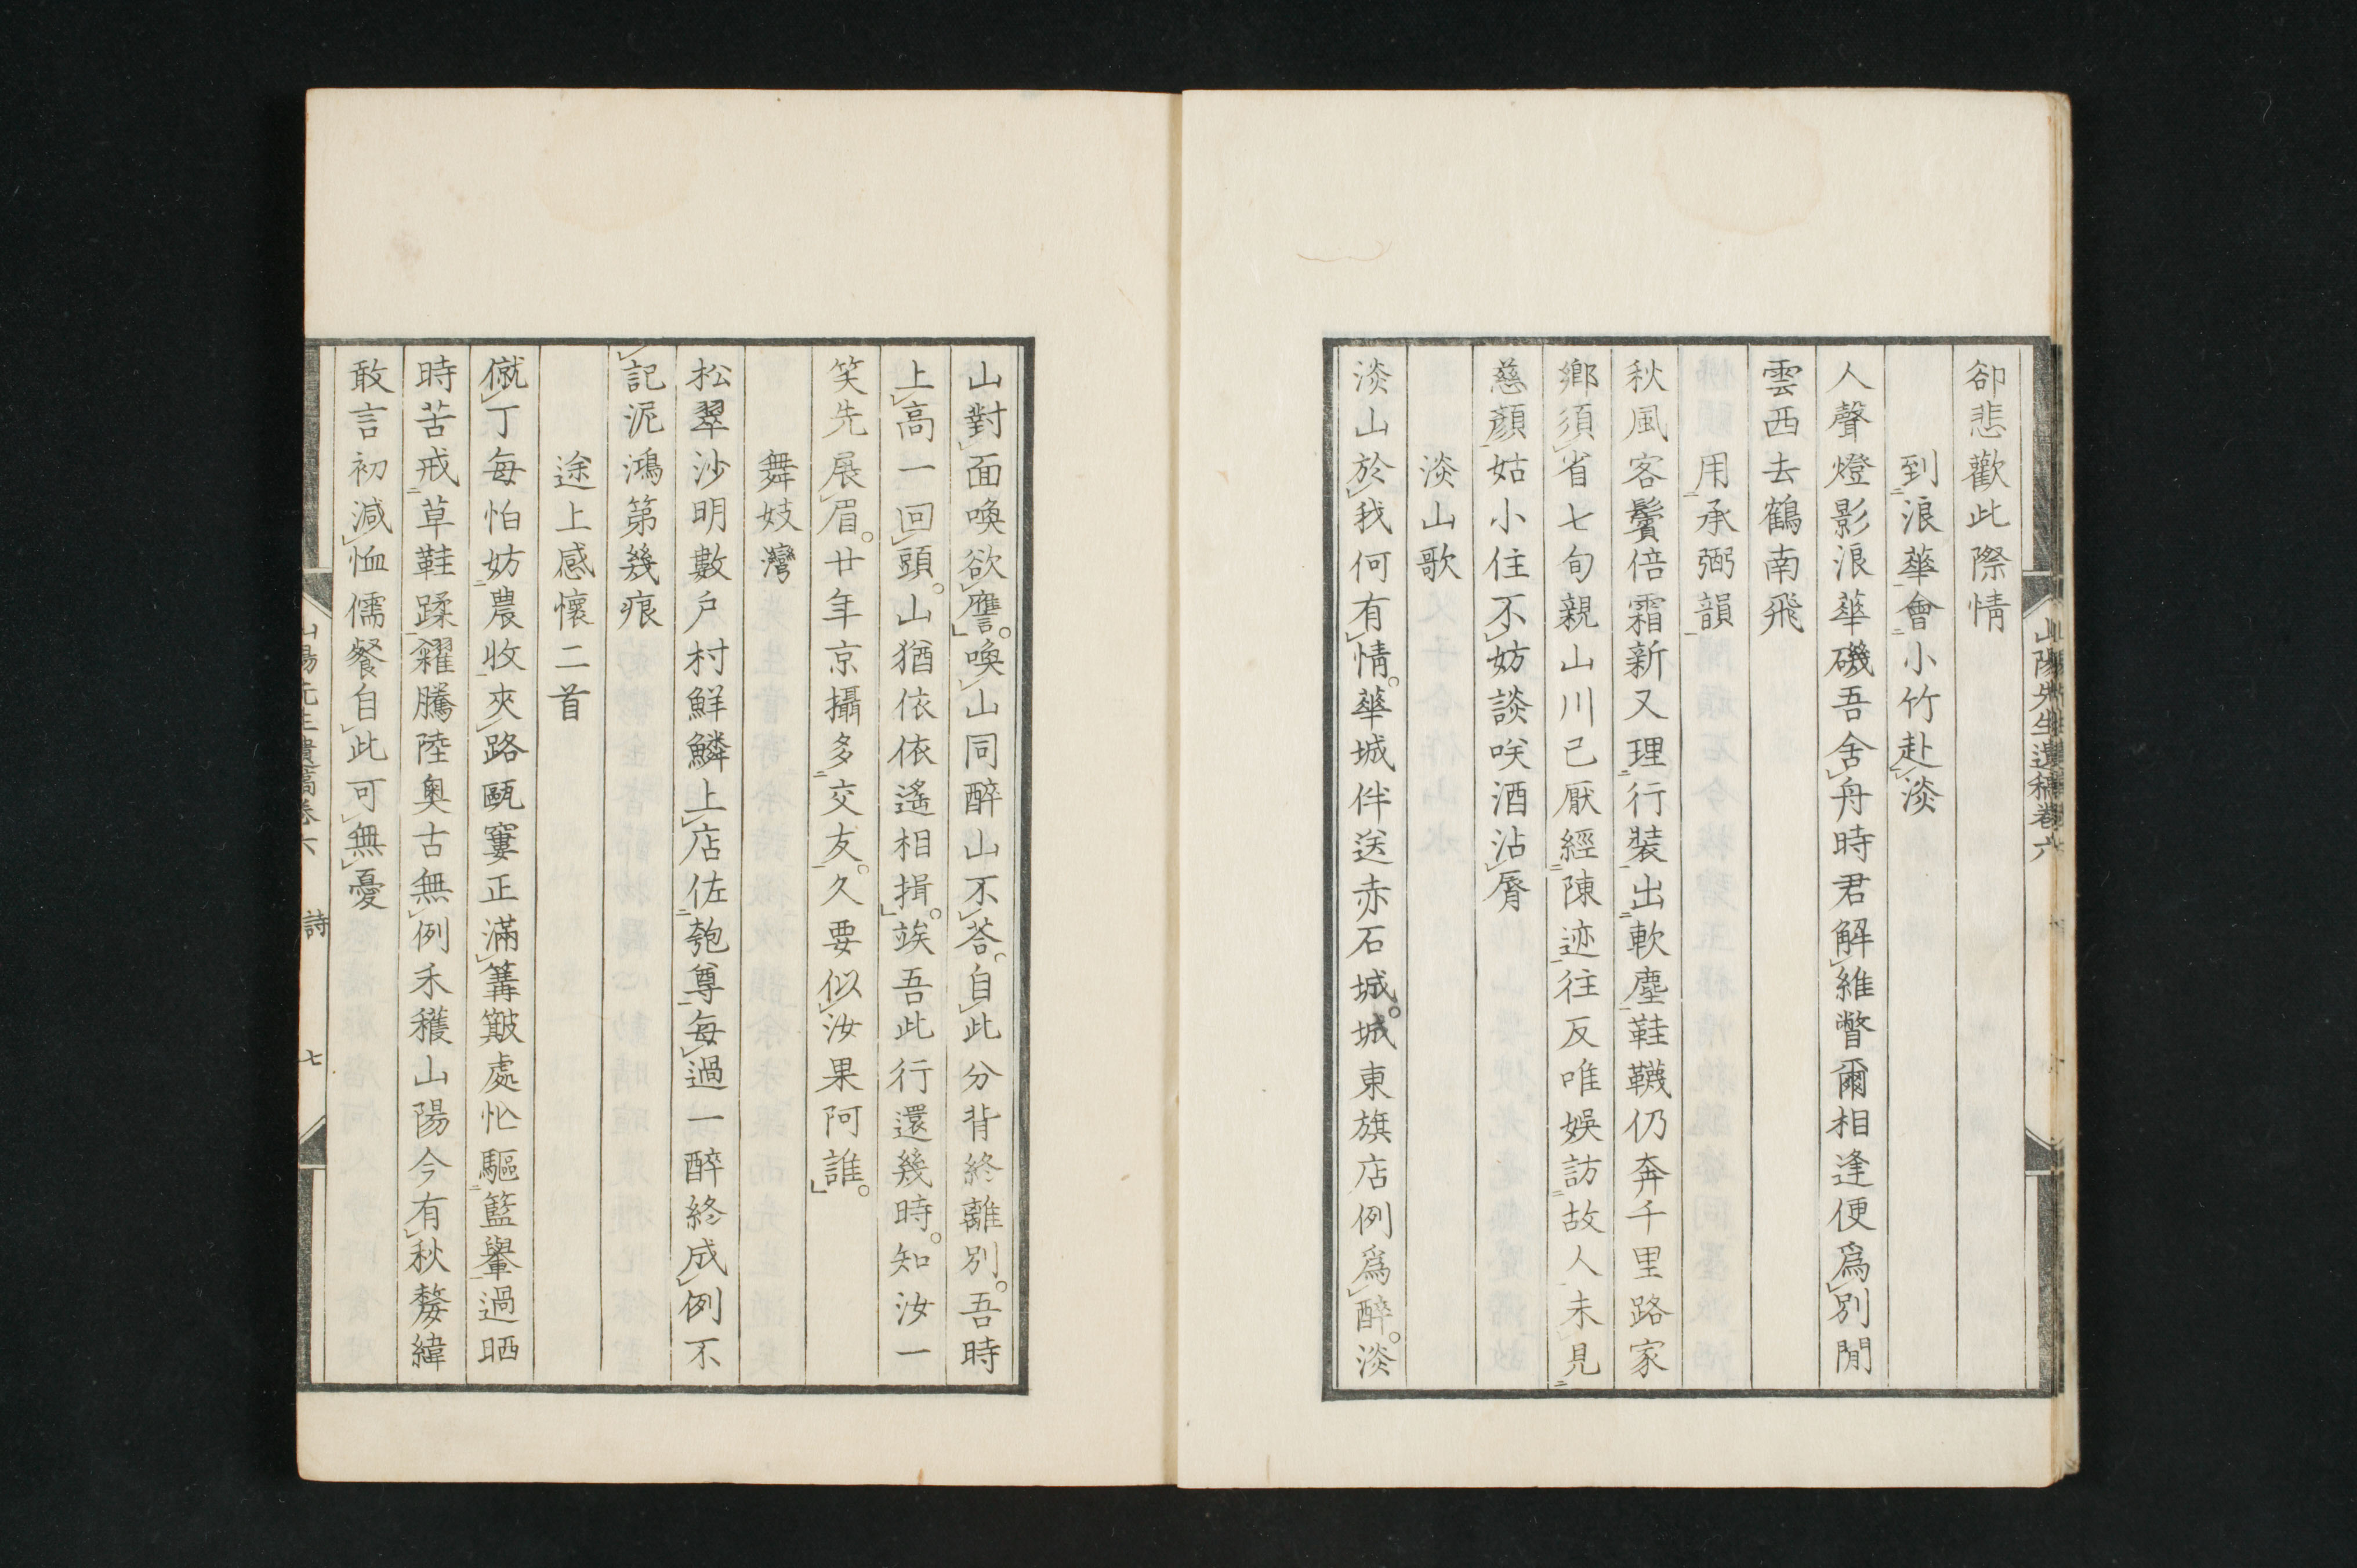 山陽先生遺稿卷六
卻悲歡此際情
到浪華會小竹赴淡
人聲燈影浪華磯吾舍舟時君解維瞥爾相逢便爲別閒
雲西去鶴南飛
用承弼韻
秋風客鬢倍霜新又理行裝出軟塵鞋韈仍奔千里路家
鄉須省七旬親山川已厭經陳迹往反唯娛訪故人未見
慈顏姑小住不妨談咲酒沾脣
淡山歌
淡山於我何有情。華城伴送赤石城。城東旗店例爲醉。淡
山對面喚欲譍。喚山同醉山不荅。自此分背終離別。吾時
上高一回頭。山猶依依遙相揖。竢吾此行還幾時。知汝一
笑先展眉。廿年京攝多交友。久要似汝果阿誰。
舞妓灣
松翠沙明數戶村鮮鱗上店佐匏尊每過一醉終成例不
記泥鴻第幾痕
途上感懷二首
僦丁每怕妨農收夾路甌窶正滿篝皾處忙驅籃轝過晒
時苦戒草鞋蹂糴騰陸奧古無例禾穫山陽今有秋嫠緯
敢言初減恤儒餐自此可無憂
山陽先生遺稿卷六 詩 七